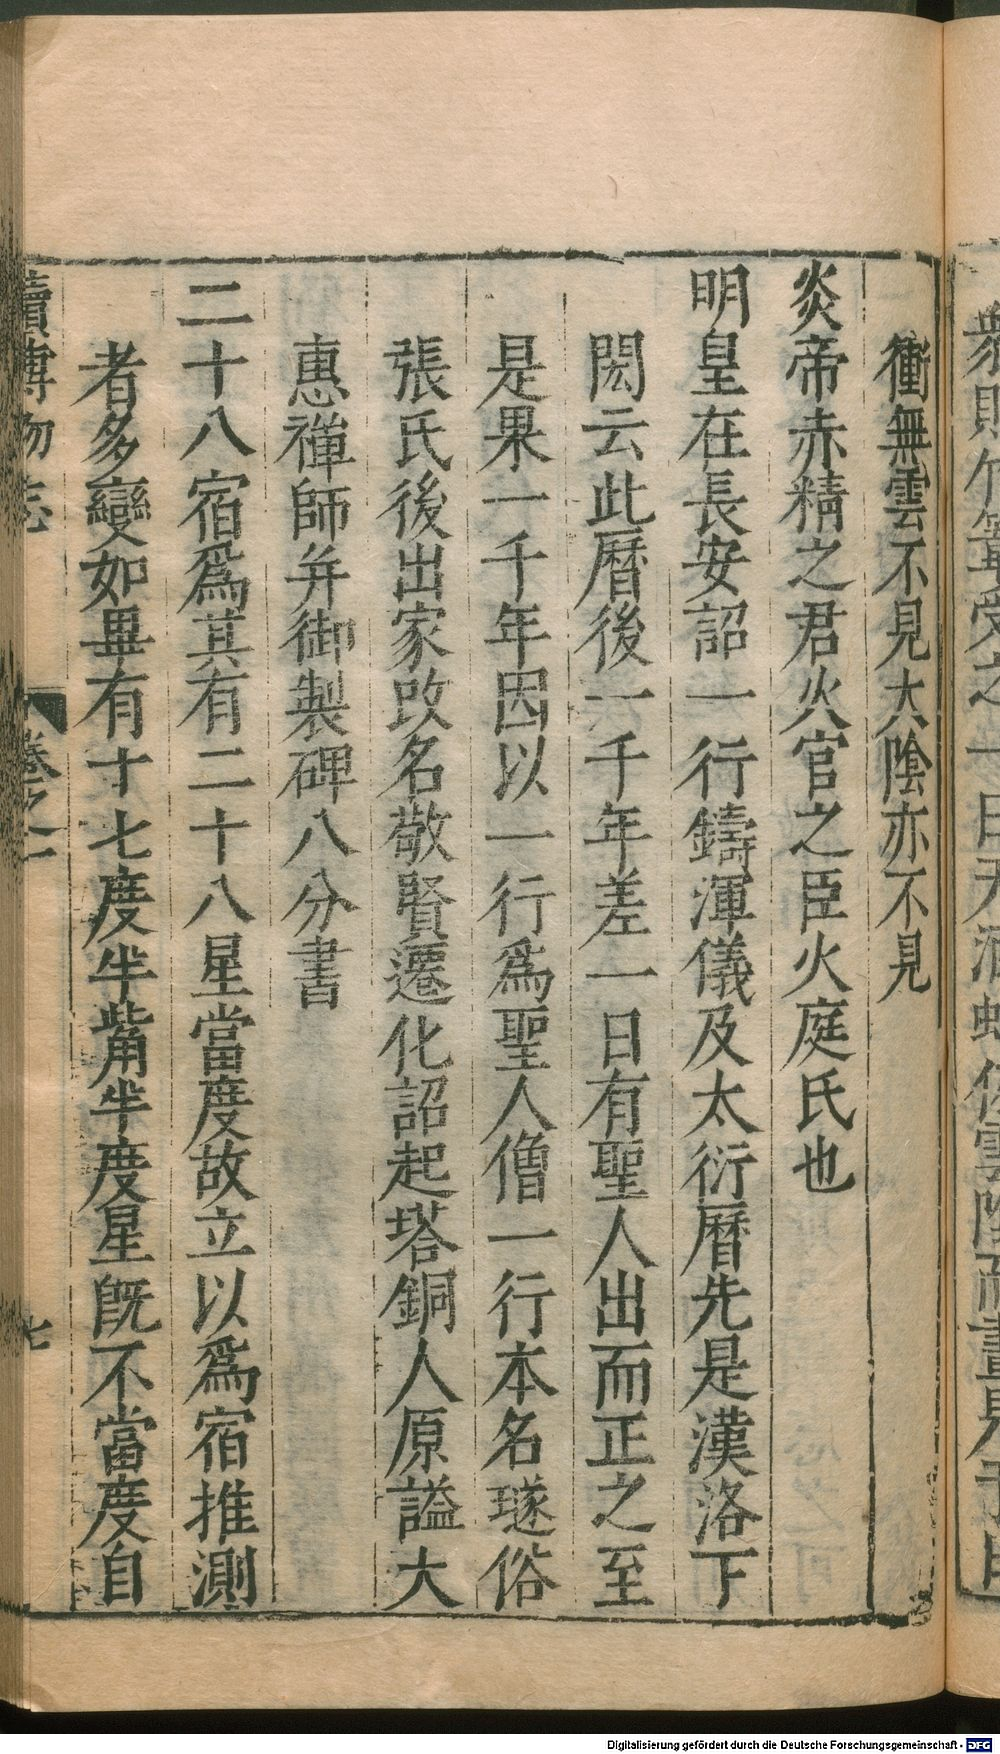 衝無雲不見太陰亦不見
炎帝赤精之君火官之臣火庭氏也
明皇在長安詔一行鑄渾儀及太衍曆先是漢洛下
閎云此曆後一千年差一日有聖人出而正之至
是果一千年因以一行爲聖人僧一行本名璲俗
張氏後出家改名敬賢遷化詔起塔銅人原謚大
惠禪師并御製碑八分書
二十八宿爲其有二十八星當度故立以爲宿推測
者多變如畢有十七度半觜半度星旣不當度自
續博物志 卷之一 七
Digitalisierung gefördert durch die Deutsche Forschungsgemeinschaft - DFG